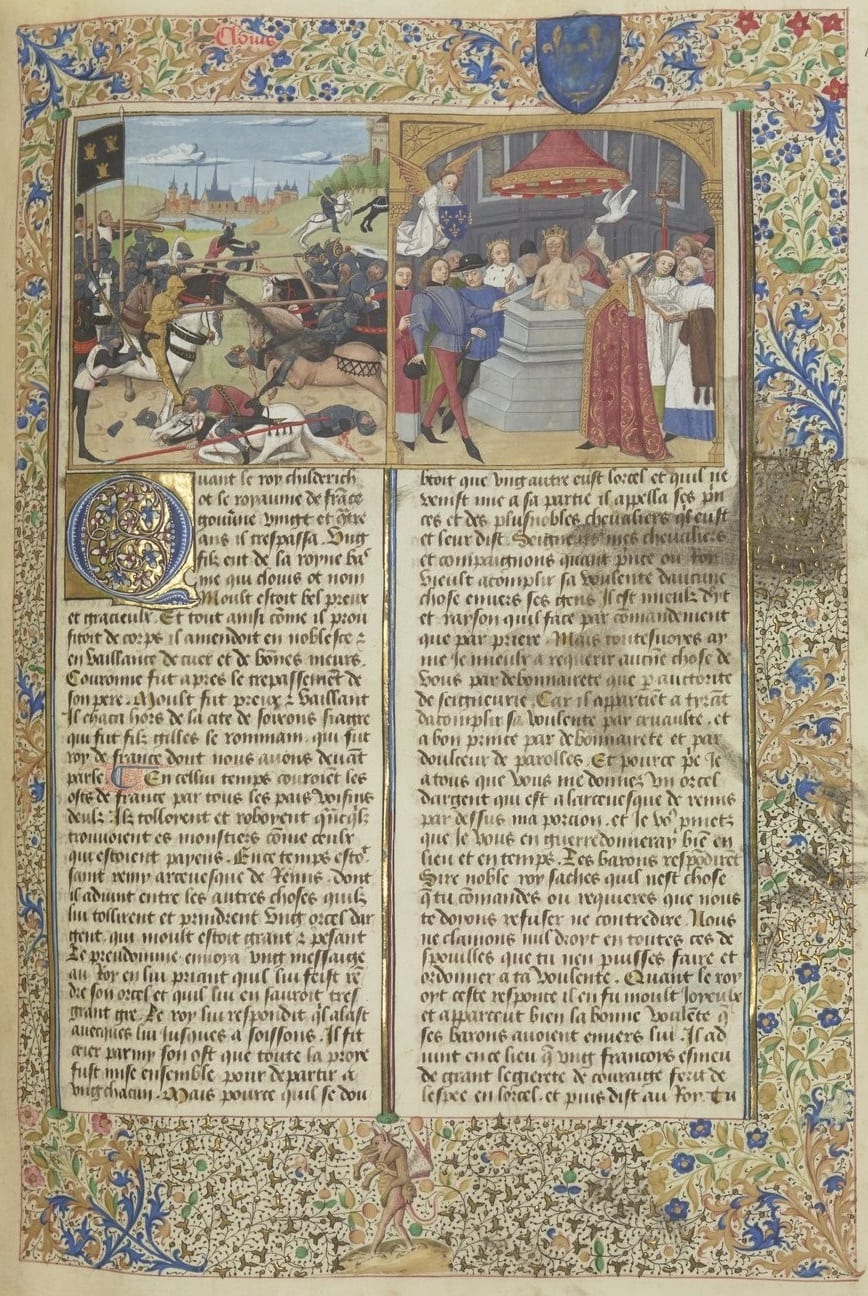 Clouis
Quant le roy childerich
ot le royaume de frāce
gouūne vingt et q̄tre
ans il trespassa. Vng
filz ent de la royne ba
me qui clouis ot nom
Moult estoit bel preux
et gracieulx. Et tout ainsi cōme il prou
fitoit de corps il amendoit en noblesce ⁊
en vaillance de cuer et de bōnes meurs.
Couronne fut apres le trepassemēt de
son pere. Moult fut preux ⁊ vaillant
Il chaca hors de la cite de soissons siagre
qui fut filz gilles le rommain. qui fut
roy de france dont nous auons deuāt
parle. En cellui temps couroiēt les
ostz de france par tous les pais voisins
deulx. Ilz tolloient et roboyent
trouuoient es monstiers cōme ceulx
qui estoient payens. En ce temps estoᵗ
saint remy arceuesque de Reims. dont
il aduint entre les autres choses quilz
lui tollirent et prindrent vng orcel dar
gent. qui moult estoit grant ⁊ pesant
Le preudomme enuoya vng messaige
au Roy en lui priant quil lui feist rē
dre son orcel et quil lui en sauroit tres
grant gre. Le roy lui respondit q̄l alast
auecques lui iusques a soissons. Il fit
crier parmy son ost que toute la proye
fust mise ensemble pour departir a
vng chacun. Mais pource quil se dou
btoit que vng autre eust lorcel et quil ne
venist mie a sa partie il appella ses p̄n
ces et des plus nobles cheualiers q̄l eust
et leur dist. Seigneurs mes cheualiers
et compaignons quant p̄nce ou Roy
vieult acomplir sa voulente daucune
chose enuers ses gens Il est mieulx dr̄yt
et rayson quil face par cōmandement
que par priere. Mais toutesuoyes ay
me Ie mieulx a requerir aucūe chose de
vous par debonnairete que p̄ auctorite
de seigneurie. Car il appartiēt a tyrāt
dacomplir sa voulente par cruaulte. et
a bon prince par debonnairete et par
doulceur de parolles. Et pource pe Ie
a tous que vous me donnez vn orcel
dargent qui est a larceuesque de reims
par dessus ma porcion. et Ie voꝰ p̄metz
que Ie vous en guerredonneray biē en
lieu et en temps. Les barons respōdirēt
Sire noble roy saches quil nest chose
q̄ tu cōmandes ou requieres que nous
te doyons refuser ne contredire. Nous
ne clamons nul droyt en toutes ces de
spoulles que tu nen puisses faire et
ordonner a ta voulente. Quant le roy
oyt ceste responce il en fu moult Ioyeulx
et apparceut bien la bonne voulēte q̄
ses barons auoient enuers lui. Il ad
uint en ce lieu q̄ vng francoys esmeu
de grant legierete de couraige ferit de
lespee en lorcel. et puis dist au Roy. Tu